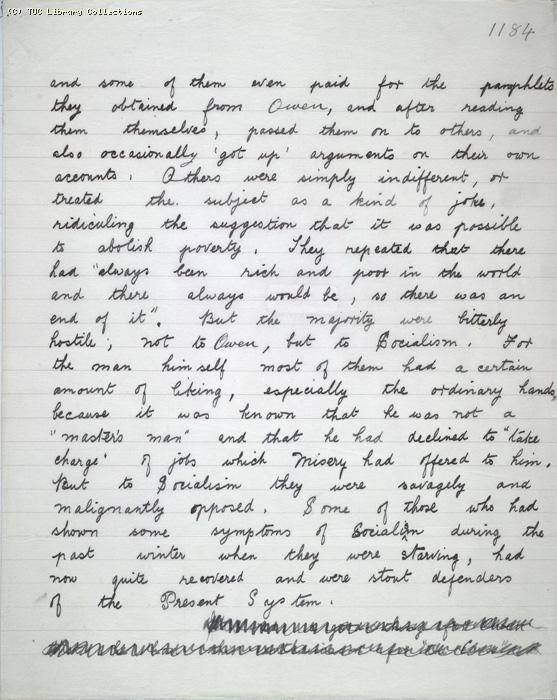 (C) TUC Library Collections
1184
and some of them even paid for the pamphlets
they obtained from Owen, and after reading
them themselves, passed them on to others, and
also occasionally 'got up' arguments on their own
accounts. Others were simply indifferent, or
treated the subject as a kind of joke,
ridiculing the suggestion that it was possible
to abolish poverty. They repeated that there
had "always been rich and poor in the world
and there always would be, so there was an
end of it". But the majority were bitterly
hostile; not to Owen, but to Socialism. For
the man himself most of them had a certain
amount of liking, especially the ordinary hands,
because it was known that he was not a
"master's man" and that he had declined to "take
charge' of jobs which Misery had offered to him.
But to Socialism they were savagely and
malignantly opposed. Some of those who had
shown some symptoms of Socialism during the
past winter when they were starving, had
now quite recovered and were stout defenders
of the Present System.